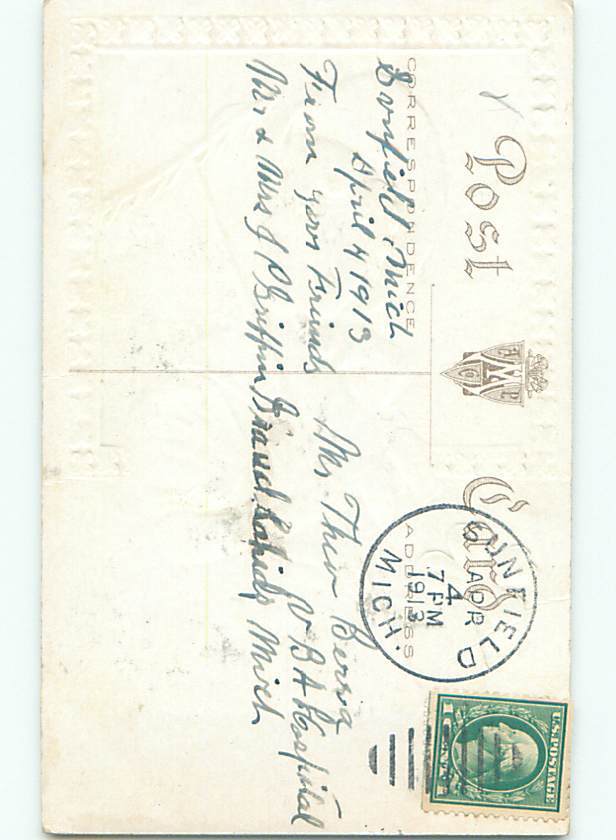 Post Card
CORRESPONDENCE
ADDRESS
Sunfield Mich
April 4 1913
From your Friends
Mr & Mrs J P Griffin
Mr Theo Berg
U B A Hospital
Grand Rapids Mich
SUNFIELD
APR
4
7 PM
1913
MICH.
U.S. POSTAGE
1 CENT 1